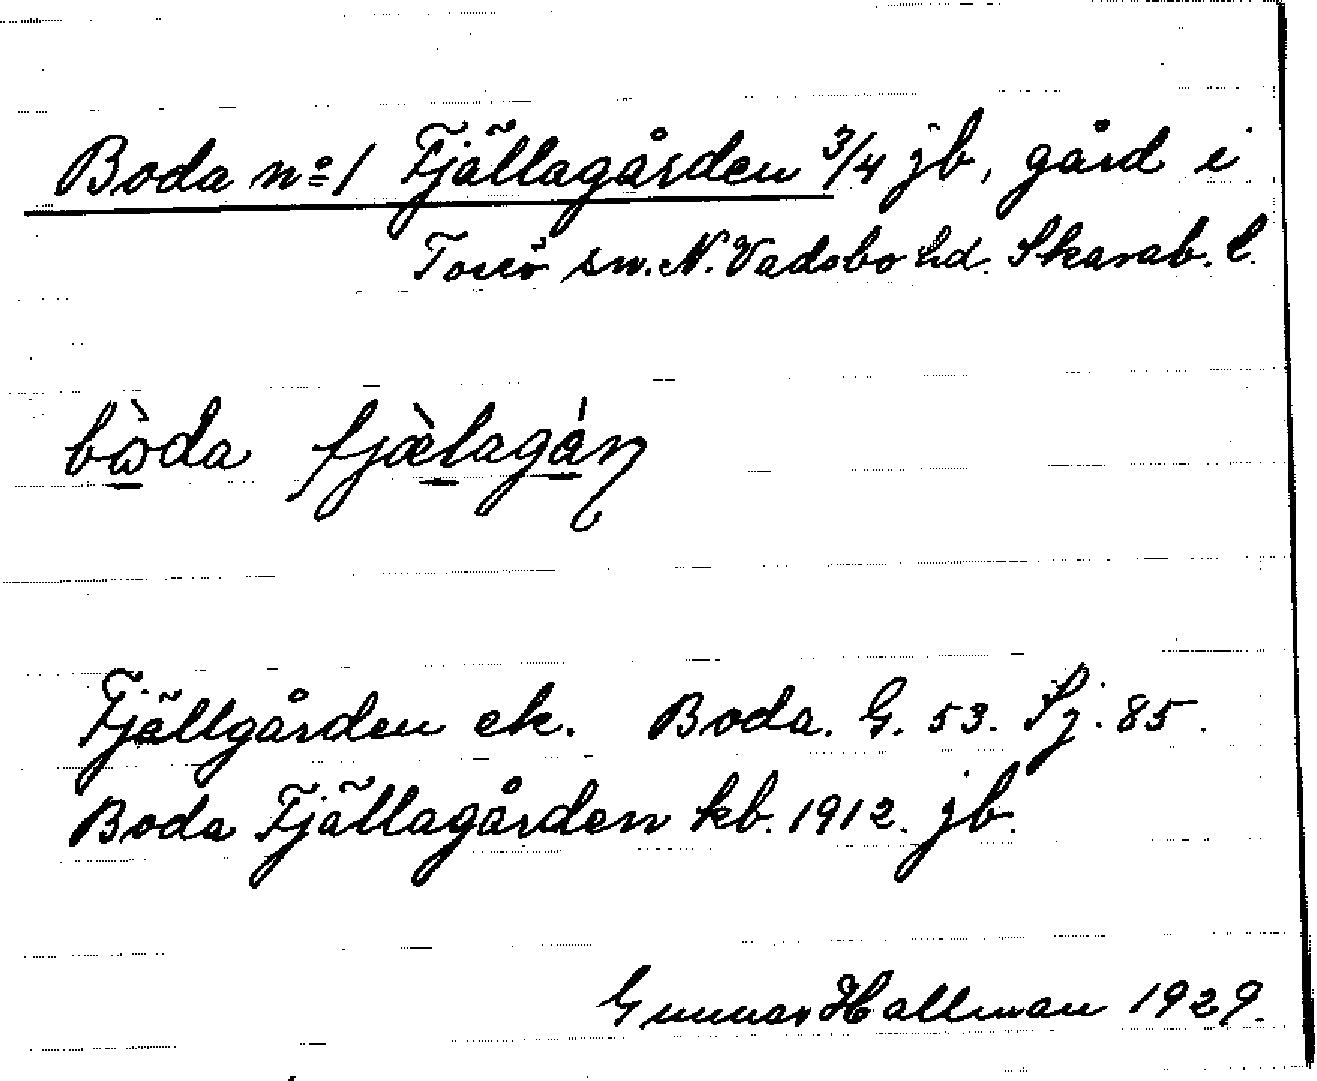 Boda nº 1 Fjällagården 3/4 jb, gård i
Torsö sn. N. Vadsbo hd. Skarab. l.
bὼda fjæ̀lagán
Fjällgården ek. Boda. G. 53. Sj. 85.
Boda Fjällagården kb. 1912. jb.
Gunnar Hallman 1929.